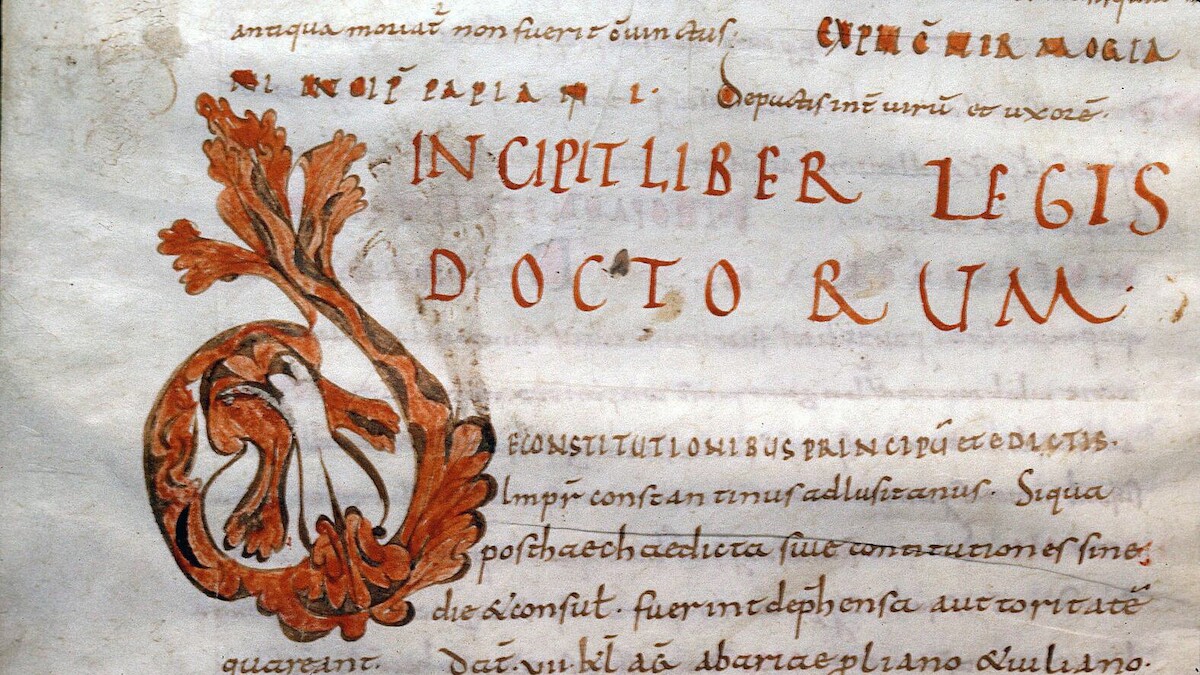 antiqua mouat̄ non fuerit c̄uinctus.
EXPLIC̄ HER MOGIA
NI INCIP̄ PAPIA N I.
Depactis int̄ uirū et uxorē.
INCIPIT LIBER LEGIS
DOCTORUM.
DECONSTITUTIONIBUS PRINCIPŪ et EDICTIS.
Imp̄r constantinus adlusitanus. Siqua
posthaec haedicta siue contitutiones sine
die & consul̄. fuerint dep̄hensa auctoritatē
quareant. Dat̄. uii. kl̄ aḡ